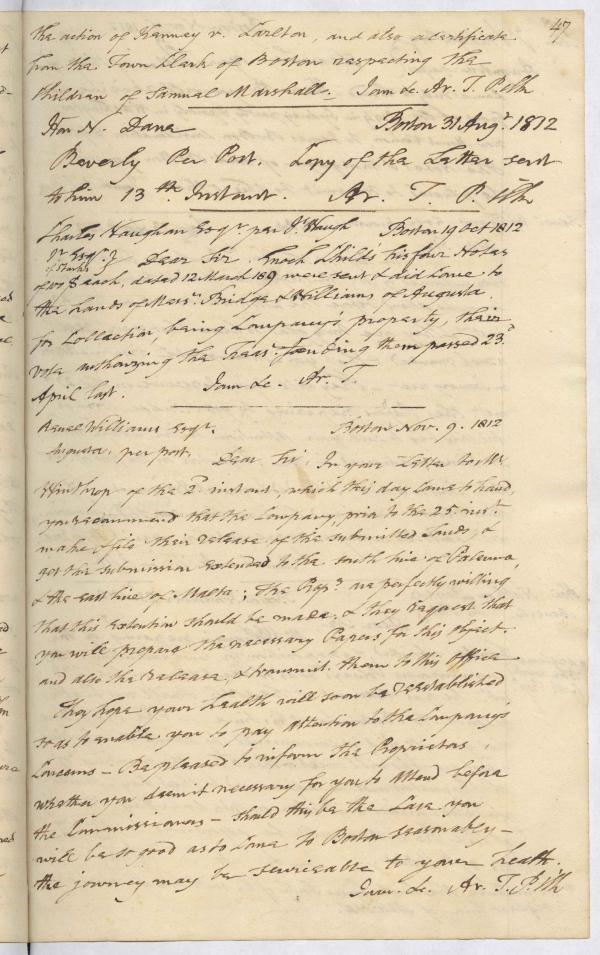 47
the action of Kenney v. Carlton, and also a certificate
from the Town Clerk of Boston respecting the
Children of Samuel Marshall. I am &c. Ar. T. P. Ck
Hon N. Dane Boston 31 Augt. 1812
Beverly Per Post. Copy of the Letter sent
to him 13th Instant. Ar. T. P. Ck
Charles Vaughan Esqr. per Boston 19 Oct 1812
Dear Sir. Enoch Childs his four Notes
of each, dated 12 March 1809 were sent &
the hands of Messrs. Bridge & Williams of Augusta
for Collection, being Company's property, their
vote authorizing the Treasr. passed 23d.
April last. I am &c. Ar. T.
Reuel Williams Esqr. Boston Nov. 9. 1812
Augusta. per post.
Dear Sir, In your Letter to Mr.
Winthrop of the 2d. instant, which this day came to hand,
you recommend that the Company, prior to the 25 inst.
make & file their release of the submitted Lands, &
get the submission extended to the south line of Palermo,
& the east line of Malta; the Propr. are perfectly willing
that this extention should be made, & they request that
you will prepare the necessary Papers for this object.
and also the release, & transmit them to this Office
They hope your health will soon be reestablished
so as to enable you to pay attention to the Company's
Concerns - Be pleased to inform the Proprietors
whether you deem it necessary for you to attend before
the Commissioners - should this be the Case you
will be so good as to Come to Boston seasonably -
the journey may be serviceable to your health.
I am. &c. Ar. T. P. Ck